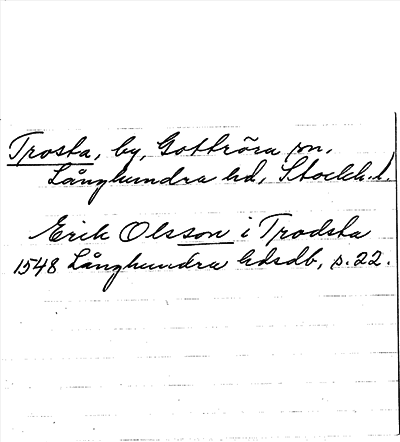 Trosta, by, Gottröra sn,
Långhundra hd, Stockh. l.
Erik Olsson i Trodsta
1548 Långhundra hdsdb, s. 22.